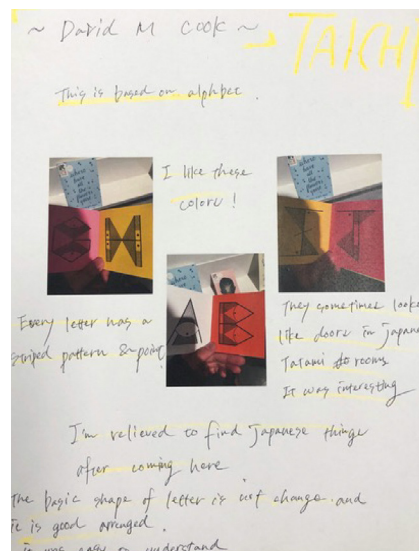 ~ David M Cook ~
TAICHI
This is based on alphbet.
I like these
colors!
Every letter has a
striped pattern & point
They sometimes looke
like doors in Japane
Tatami rooms
It was interesting
A B
I'm relieved to find Japanese things
after coming here
The basic shape of letter is not change. and
is good arranged.
it was easy understand